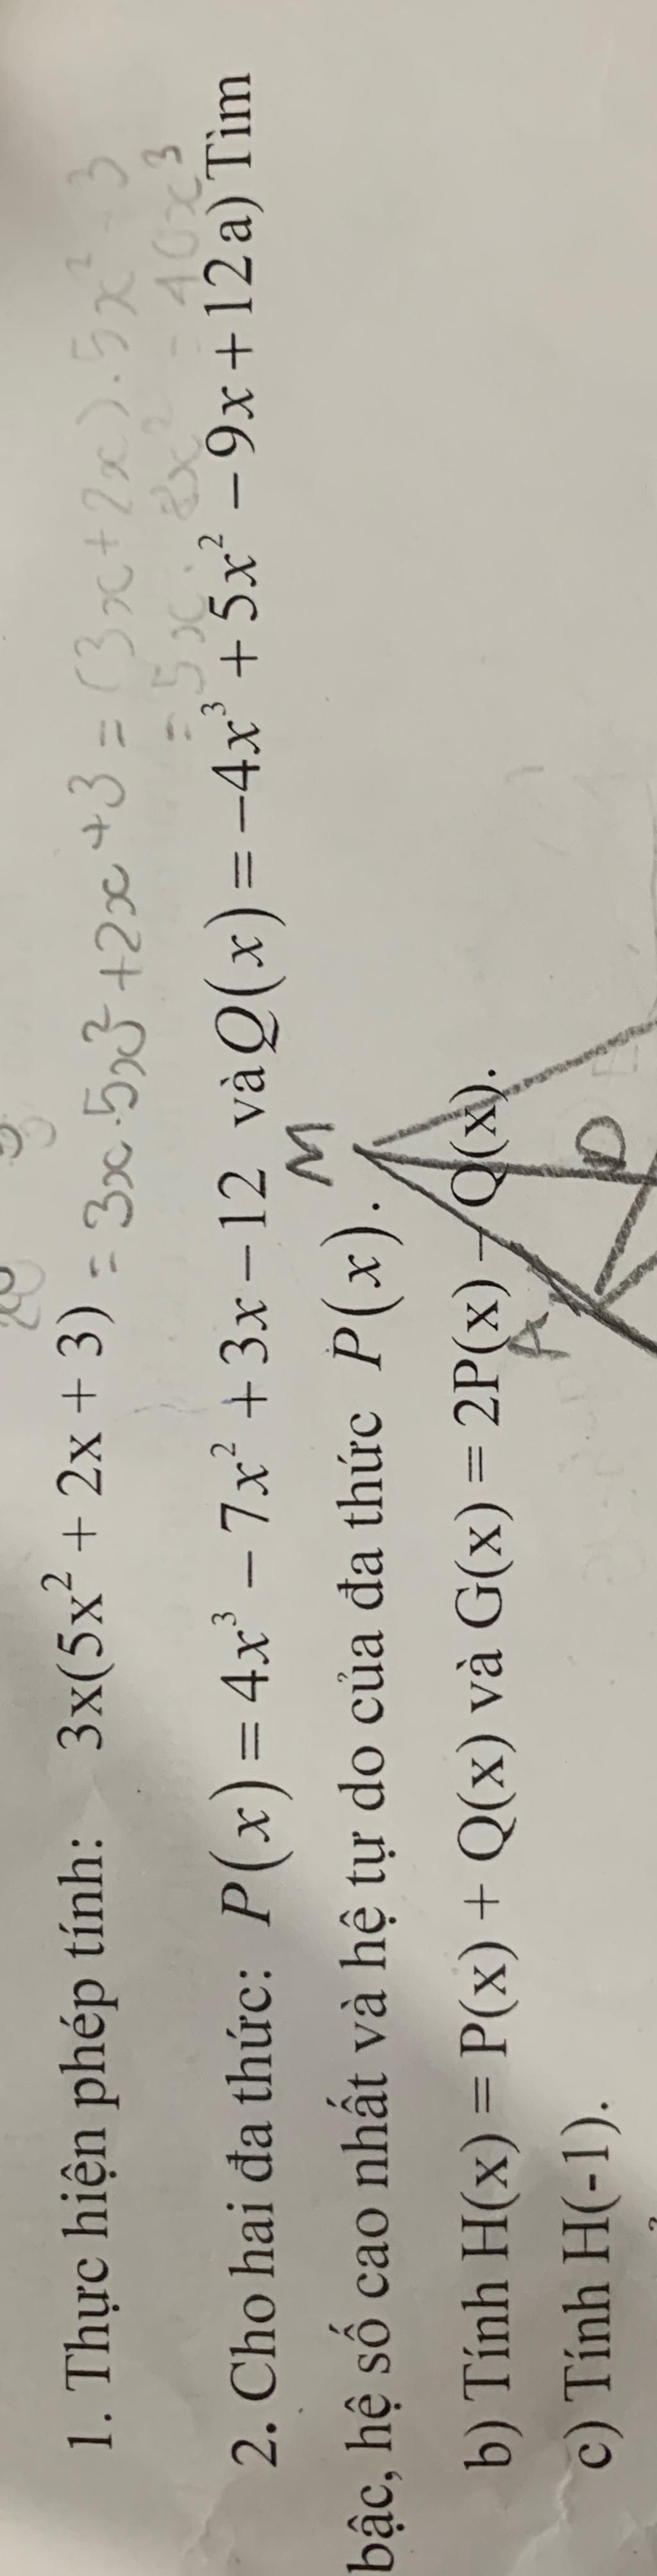 1. Thực hiện phép tính: 3x(5x² + 2x + 3) = 3x.5x² + 2x + 3 = (3x + 2x).5x².3
= 5x. = 10x³
2. Cho hai đa thức: P(x) = 4x³ − 7x² + 3x − 12 và Q(x) = −4x³ + 5x² − 9x + 12 a) Tìm
bậc, hệ số cao nhất và hệ tự do của đa thức P(x).
M
b) Tính H(x) = P(x) + Q(x) và G(x) = 2P(x) – Q(x).
A D
c) Tính H(-1).